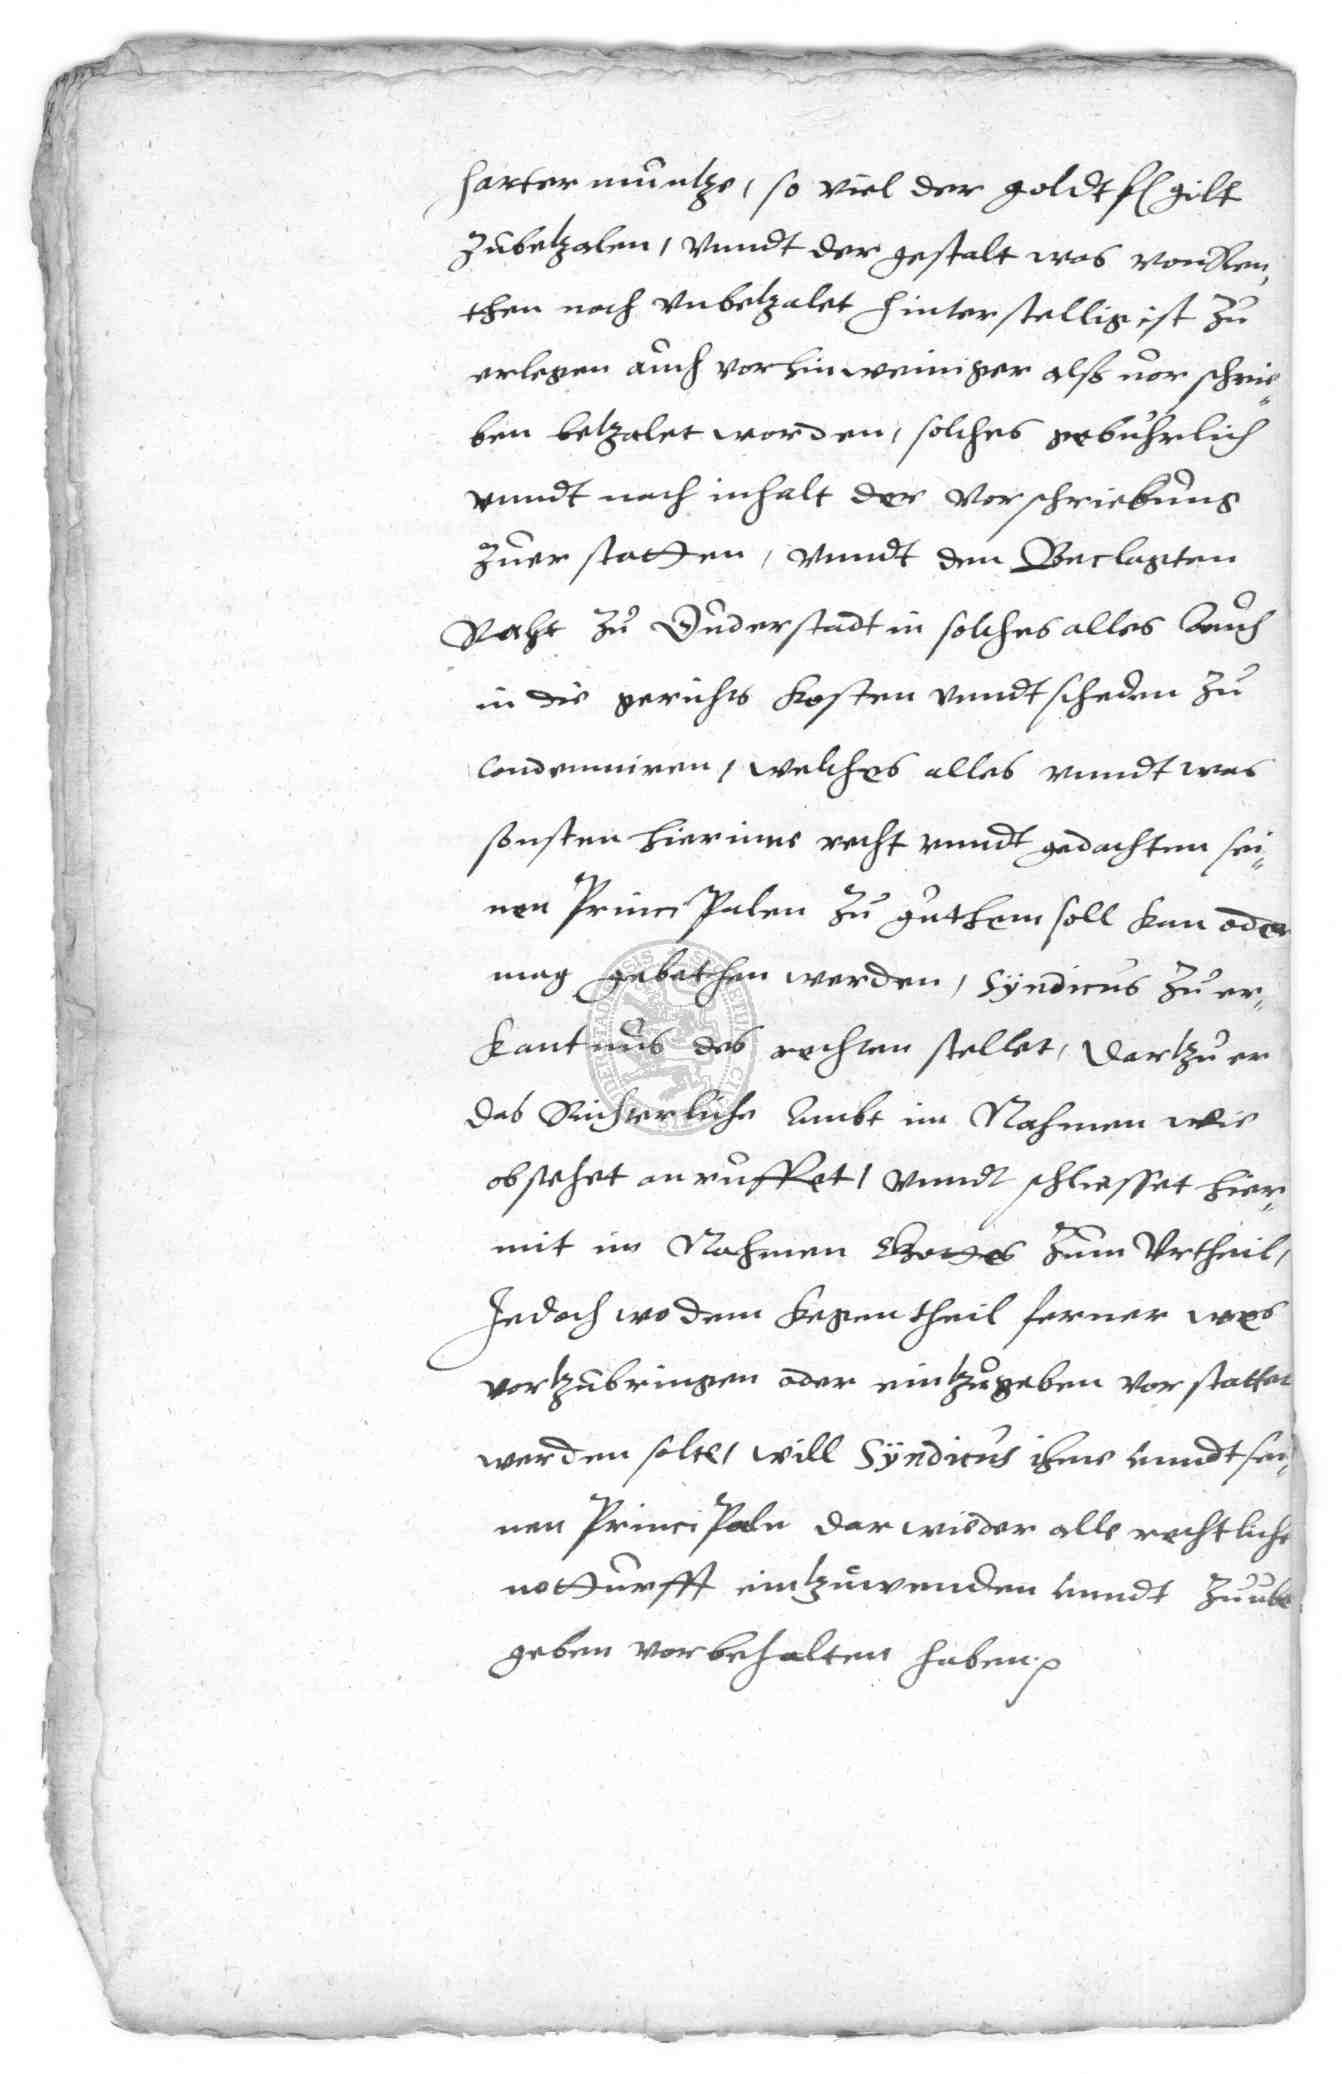 harter muntze, so viel der goldt fl gilt
zubetzalen, vnndt der gestalt was von Ren,
then noch vnbetzalet hinterstellig ist zu
erlegen auch vorhin weiniger alß vorschrie¬
ben betzalet worden, solches gebuhrlich
vnndt nach inhalt der Vorschriebung
zuerstatten, vnndt den Beclagten
Raht zu Duderstadt in solches alles auch
in die gerichts kosten vnndt scheden zu
condemniren, welches alles vnndt was
sonsten hierinne recht vnndt gedachten sei¬
nen Principalen zu guthem soll kan oder
mag gebethen werden, Syndicus zu er¬
kantnus des rechten stellet, dartzu er
das Richterliche Ambt im Nahmen wie
obstehet anruffet, vnndt schliesset hier¬
mit im Nahmen Gottes zum Vrtheil,
Jedoch wo dem kegentheil ferner wes
vortzubringen oder eintzugeben vorstattet
werden solte, will Syndicus ihme vnndt sei¬
nen Principaln darwieder alle rechtliche
notturfft eintzuwenden vnndt zu ube
geben vorbehalten haben